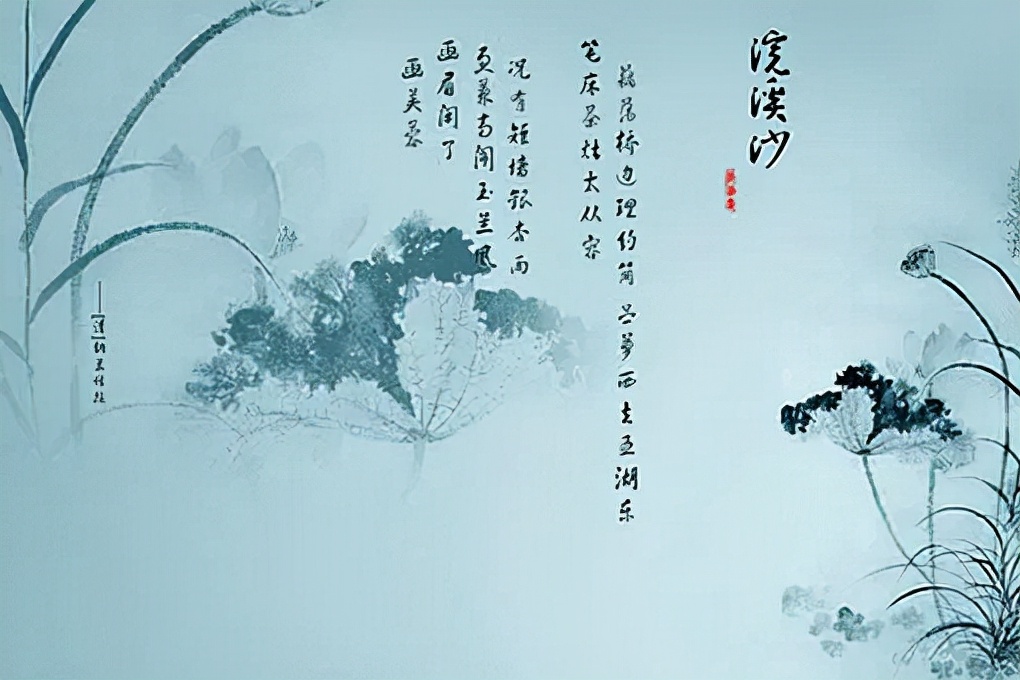 浣溪沙
藕荡桥边理钓筩 苎萝西去五湖东
笔床茶灶太从容
况有短墙银杏雨
更兼高阁玉兰风
画眉闲了
画芙蓉
——[清]纳兰性德